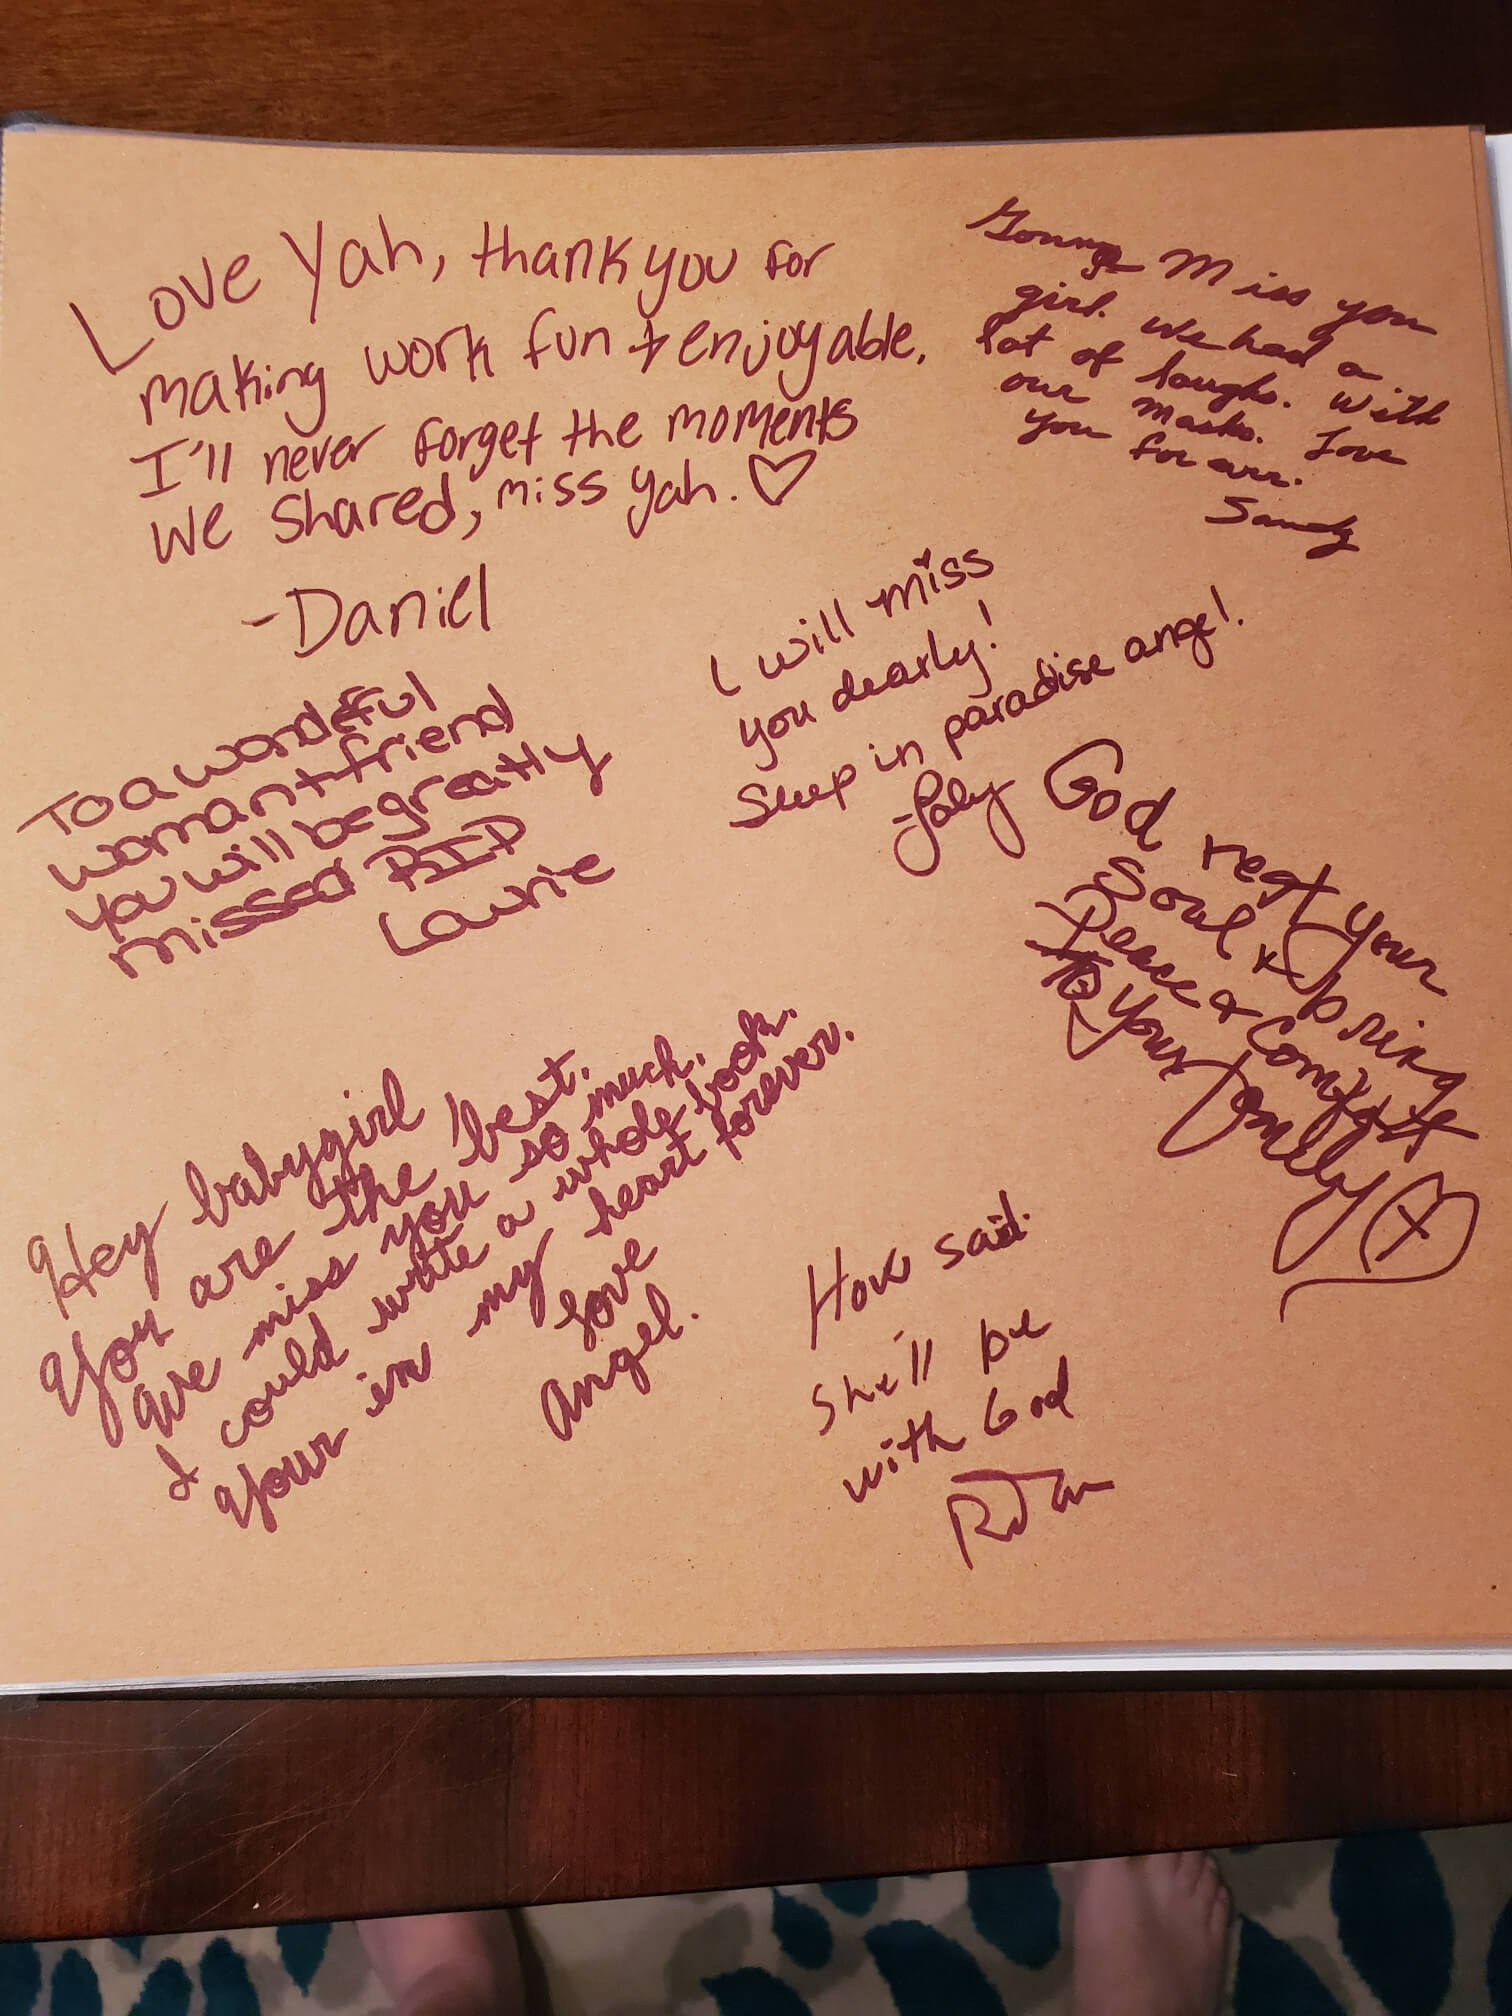 Love Yah, thank you for
making work fun + enjoyable.
I'll never forget the moments
we shared, miss yah. ♡
-Daniel
Gonna miss you
girl. We had a
lot of laughs. With
our masks. Love
you for evr.
Sandy
I will miss
you dearly!
Sleep in paradise angel.
To a wonderful
woman + friend
you will be greatly
missed RIP
Laurie
God rest your
Soul & bring
Peace & Comfort
To Your Family
Hey babygirl
You are the best.
We miss you so much.
I could write a whole book.
Your in my heart forever.
Love
Angel.
How said.
She'll be
with God